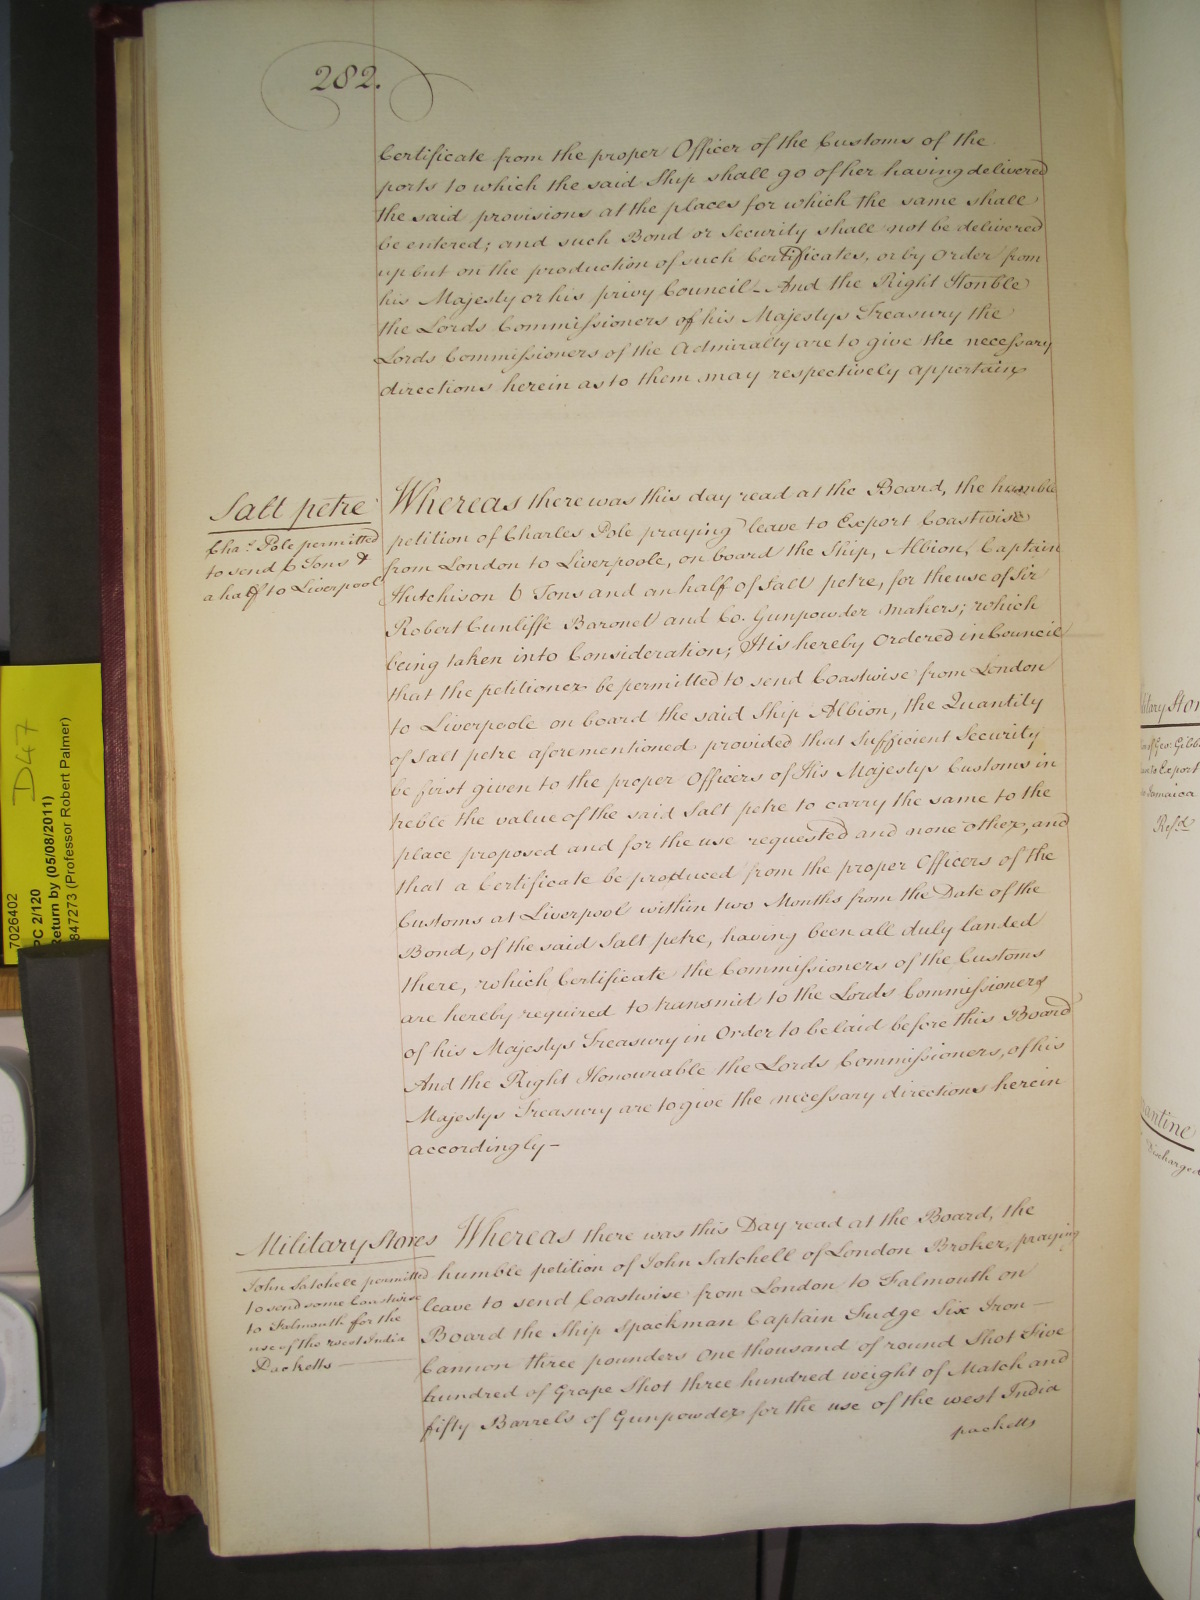 282.
Certificate from the proper Officer of the Customs of the
ports to which the said Ship shall go of her having delivered
the said provisions at the places for which the same shall
be entered; and such Bond or Security shall not be delivered
up but on the production of such Certificates, or by Order from
his Majesty or his privy Council - And the Right Honble
the Lords Commissioners of his Majestys Treasury the
Lords Commissioners of the Admiralty are to give the necessary
directions herein as to them may respectively appertain
Salt petre
Chas. Pole permitted
to send 6 Tons &
a half to Liverpool
Whereas there was this day read at the Board, the humble
petition of Charles Pole praying leave to Export Coastwise
from London to Liverpoole, on board the Ship, Albion, Captain
Hutchison 6 Tons and an half of Salt petre, for the use of Sir
Robert Cunliffe Baronet and Co. Gunpowder Makers; which
being taken into Consideration; It is hereby Ordered in Council
that the petitioner be permitted to send Coastwise from London
to Liverpoole on board the said Ship Albion, the Quantity
of Salt petre aforementioned provided that Sufficient Security
be first given to the proper Officers of His Majestys Customs in
treble the value of the said Salt petre to carry the same to the
place proposed and for the use requested and none other, and
that a Certificate be produced from the proper Officers of the
Customs at Liverpool within two Months from the Date of the
Bond, of the said Salt petre, having been all duly landed
there, which Certificate the Commissioners of the Customs
are hereby required to transmit to the Lords Commissioners
of his Majestys Treasury in Order to be laid before this Board
And the Right Honourable the Lords Commissioners, of his
Majestys Treasury are to give the necessary directions herein
accordingly -
Military Stores
John Satchell permitted
to send some Coastwise
to Falmouth for the
use of the West India
Packetts
Whereas there was this Day read at the Board, the
humble petition of John Satchell of London Broker, praying
leave to send Coastwise from London to Falmouth on
Board the Ship Spackman Captain Fudge Six Iron
Cannon three pounders One thousand of round Shot Five
hundred of Grape Shot three hundred weight of Match and
fifty Barrels of Gunpowder for the use of the West India
packetts
D47
7026402
PC 2/120
Return by (05/08/2011)
847273 (Professor Robert Palmer)
to Export
Jamaica
Refd.
Discharged